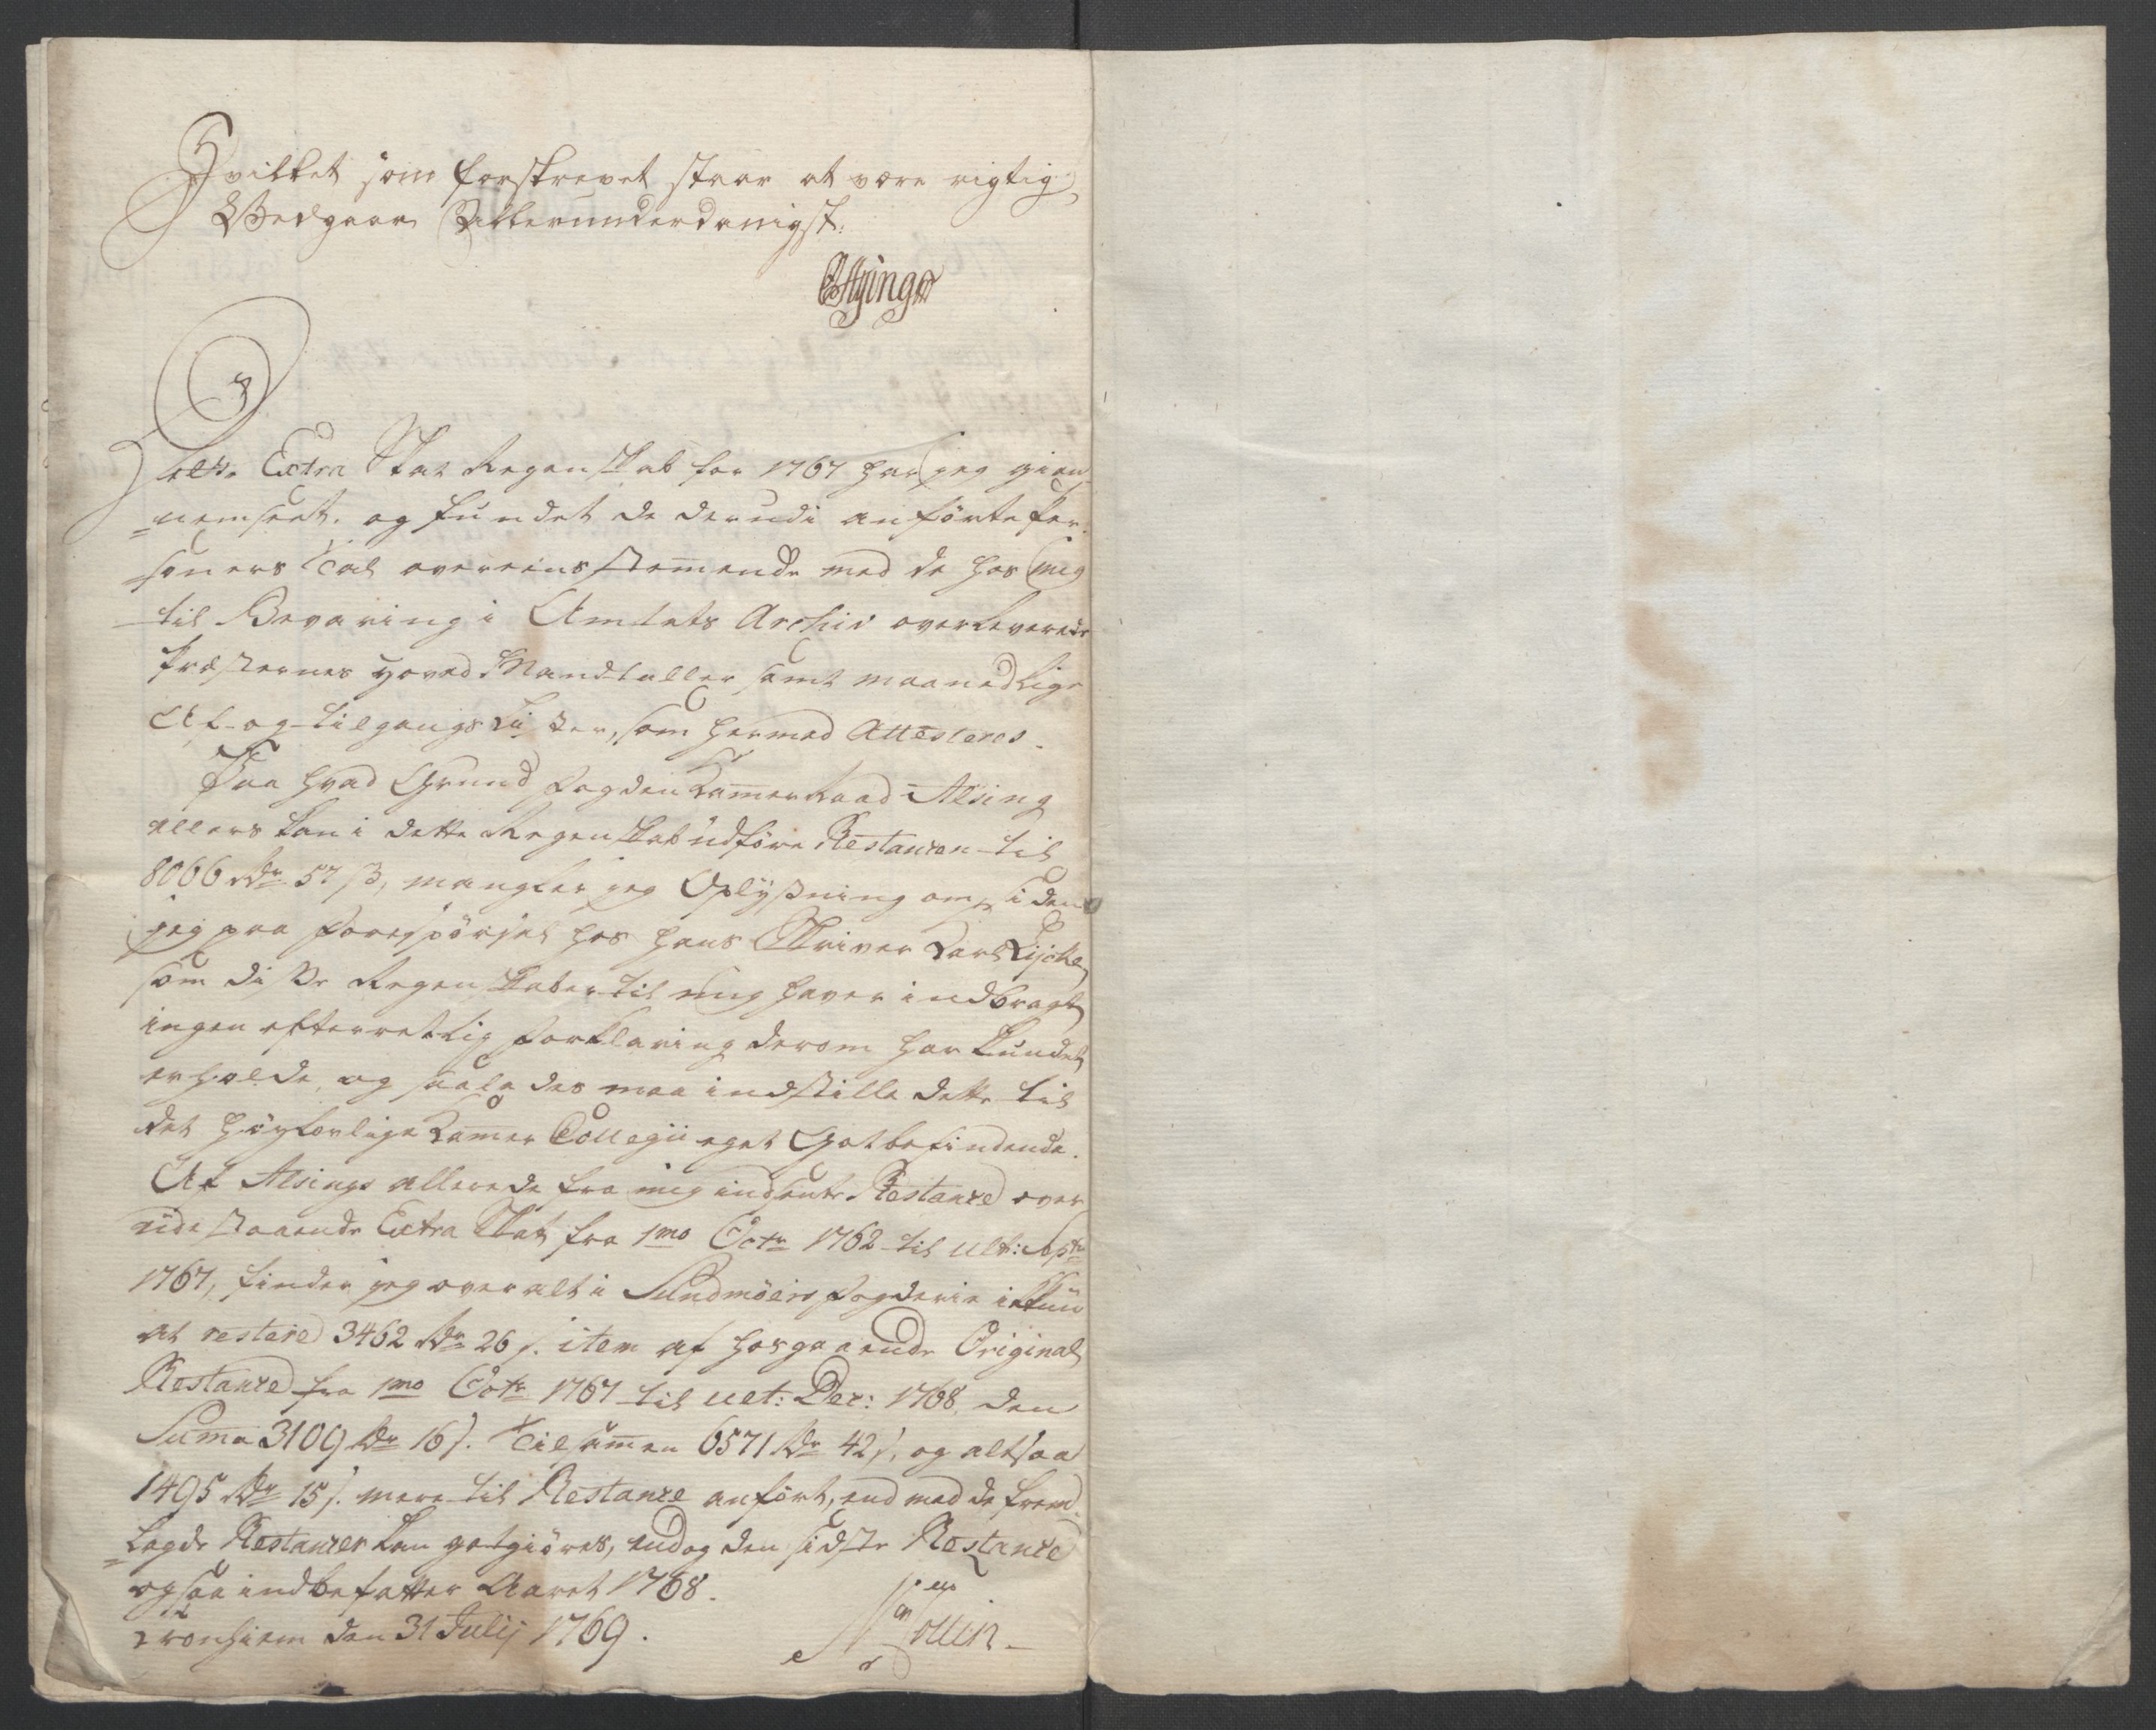 Hvilket som forskrevet staar at være rigtig
Vedgaar Allerunderdanigst.
Alsing
Dette Extra Skat Regenskab for 1767 har jeg gien-
nemseet, og fundet de derudi anförte Per-
soners Tal overeensstemmende med de hos mig
til Bevaring i Amtets Archiv overleverede
Præsternes Hoved Mandtaller samt maanedlige
Af- og Tilgangs Lister, som hermed Attesteres.
Paa hvad Grund Fogden Kammerraad Alsing
ellers kan i dette Regenskab udföre Restancen til
8066 Rdr 57 ß, mangler jeg Oplysning om, siden
jeg paa Forespörsel hos hans Skriver Carl
som disse Regenskaber til mig haver indbragt
ingen efterrettlig Forklaring derom har kundet
erholde, og saaledes maa indstille dette til
det höylovlige Kammer Collegii eget Gotbefindende.
Af Alsings allerede fra mig indsendte Restance over
udestaaende Extra Skat fra 1mo Octr 1762 til ult: Septr
1767, finder jeg over alt i Sundmöers Fogderie ikkun
at restere 3462 Rdr 26 s. item af hosgaaende Original
Restance fra 1mo Octr 1767 til ult: Dec: 1768. den
Summa 3109 Rdr 16 s. Tilsammen 6571 Rdr 42 s, og altsaa
1495 Rdr 15 s. mere til Restance anfört, end med de frem-
lagde Restancer kan gotgiöres, endog den sidste Restance
ogsaa indbefatter Aaret 1768.
Tronhiem den 31 Julij 1769.
Collin